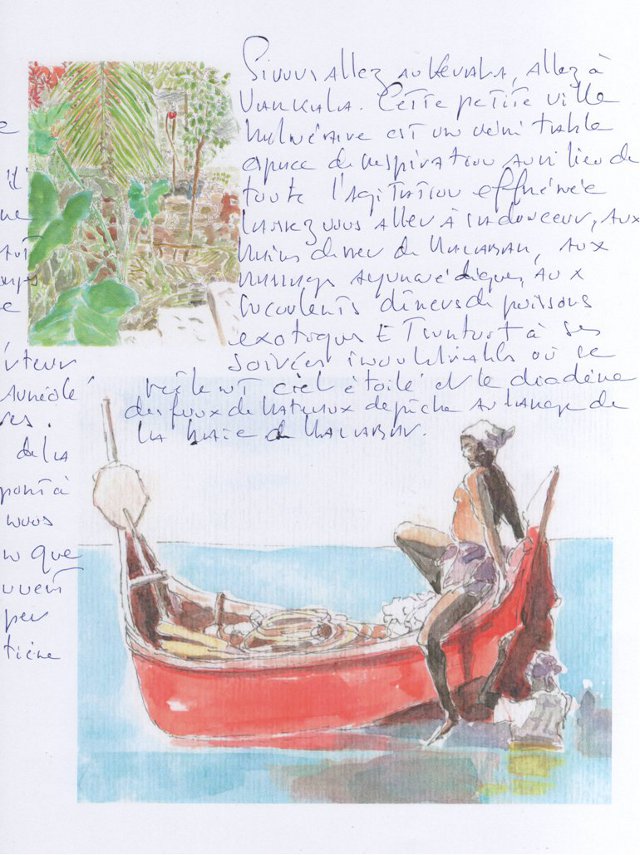 Si vous allez au Kerala, allez à
Varkala. Cette petite ville
balnéaire est un véritable
espace d'inspiration au milieu de
toute l'agitation effrénée
Laissez vous aller à sa douceur, aux
bains de mer de Malabar, aux
massages ayurvédiques, aux
succulents dîners de poissons
exotiques et surtout à ses
soirées inoubliables où se
ciel étoilé et le diadème
des feux de bateaux de pêche au large de
la baie de Malabar.
Auréolé
res.
de la
pont à
vous
que
uvent
per
tière